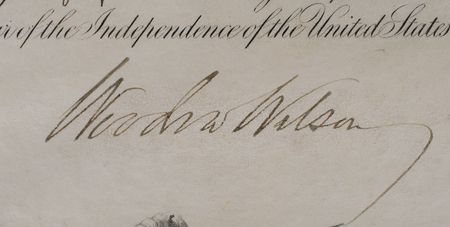 ar of the Independence of the United States
Woodrow Wilson